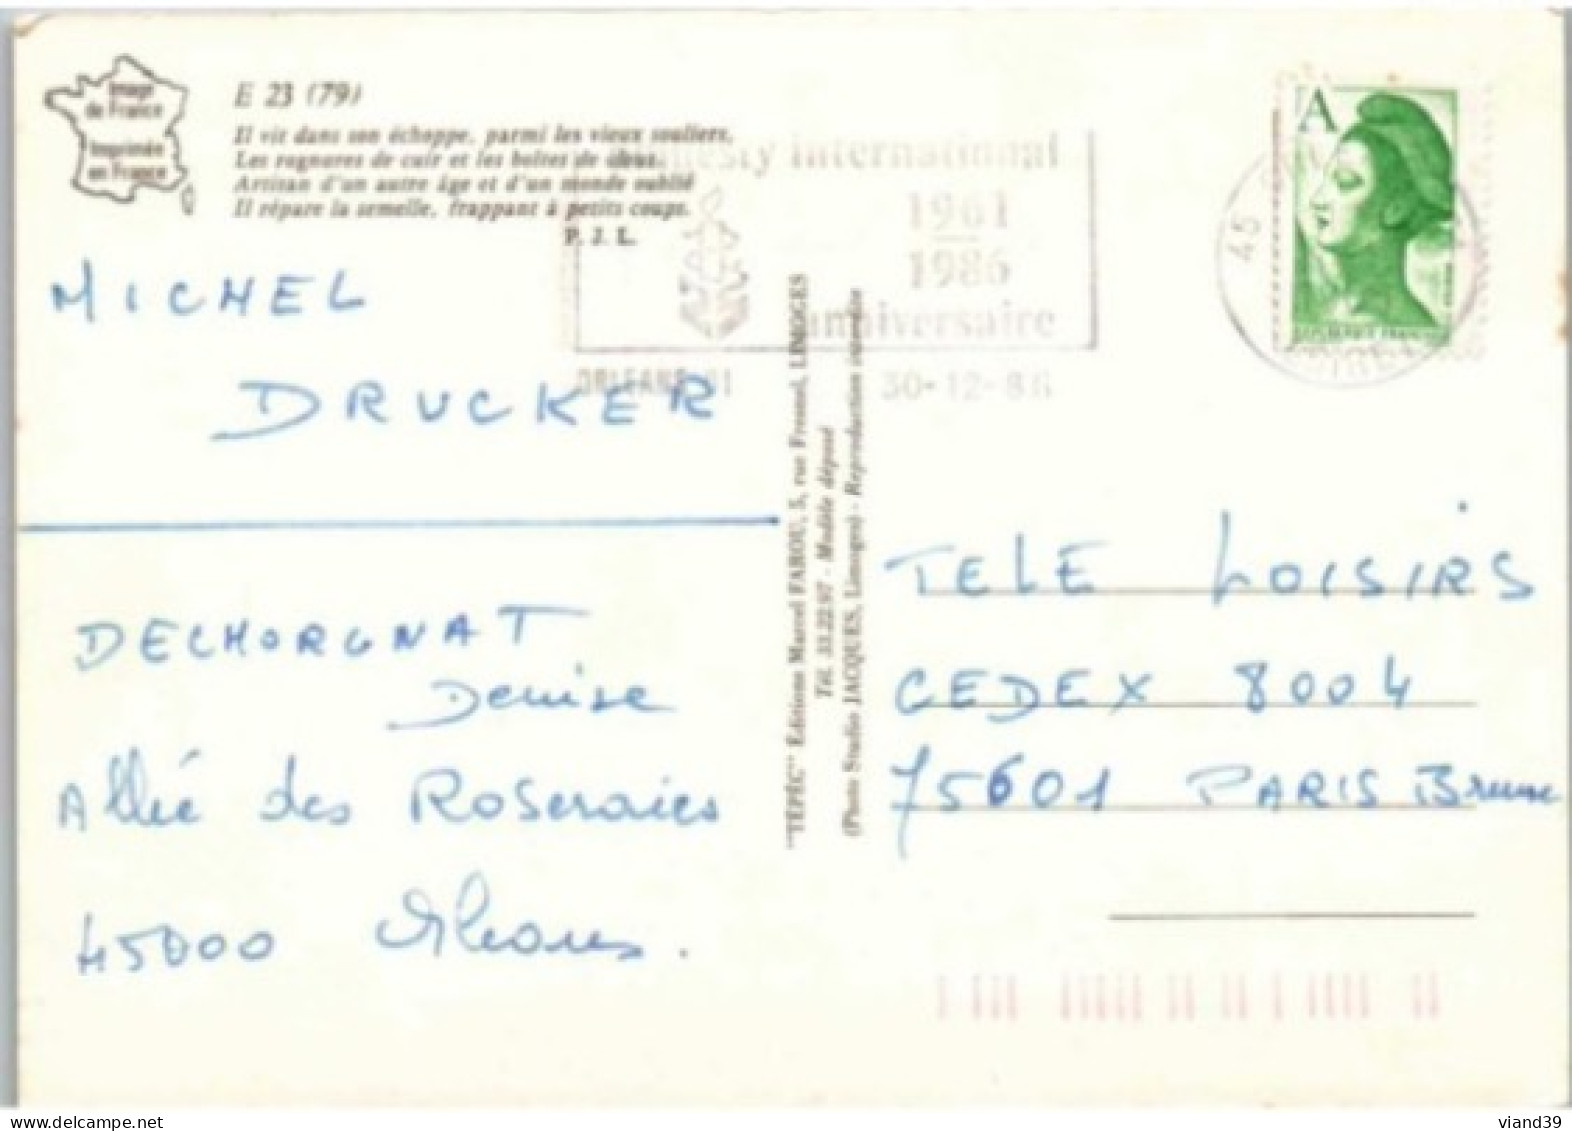 Image
de France
Imprimée
en France
E 23 (79)
Il vit dans son échoppe, parmi les vieux souliers,
Les rognures de cuir et les boîtes de clous.
Artisan d'un autre âge et d'un monde oublié
Il répare la semelle, frappant à petits coups.
P. J. L.
amnesty international
1961
1986
anniversaire
ORLEANS 01 30-12-86
45
A
MICHEL
DRUCKER
DECHORGNAT
Denise
Allée des Roseraies
45000 Orléans.
"TÉPÉC" Editions Marcel FAROU, 5, rue Fresnel, LIMOGES
Tél. 33.22.97 - Modèle déposé
(Photo Studio JACQUES, Limoges) - Reproduction interdite
TELE LOISIRS
CEDEX 8004
75601 PARIS Brune
viand39